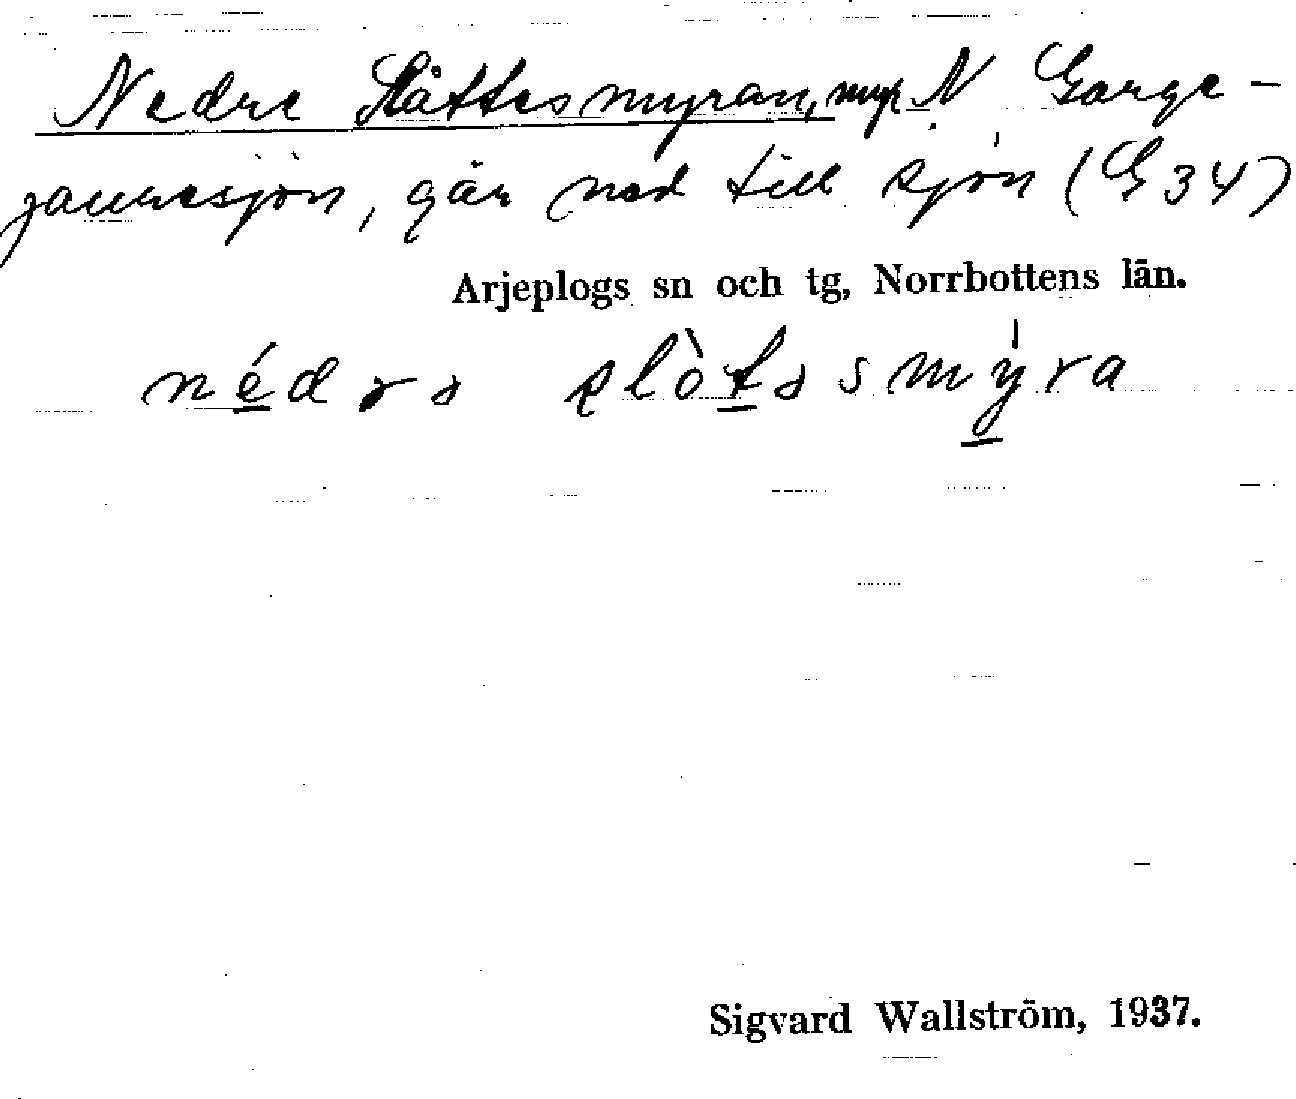 Nedre Slåttesmyran, myr N Garge-
jauresjön, går ned till sjön (G 34)
Arjeplogs sn och tg, Norrbottens län.
nédrə slòtəsmýra
Sigvard Wallström, 1937.